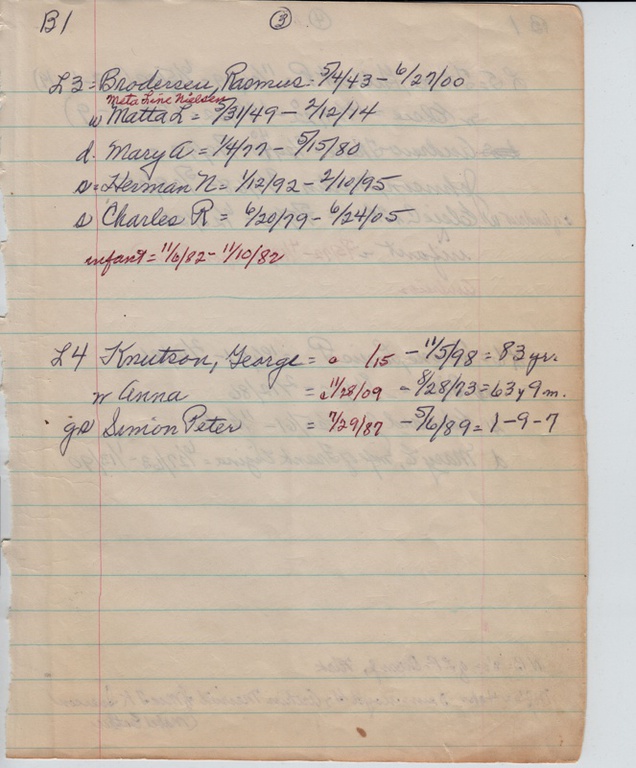 B1 3
L3 = Brodersen, Rasmus - 5/4/43 - 6/27/00
Meta Line Nielsen
w Matta L = 5/31/49 - 2/12/14
d. Mary A = 1/4/77 - 5/15/80
s = Herman N = 1/12/92 - 2/10/95
s Charles R = 6/20/79 - 6/24/05
infant = 11/6/82 - 11/10/82
L4 Knutson, George = c /15 - 11/5/98 = 83 yr.
w Anna = c 11/28/09 - 8/28/73 = 63 y 9 m.
gs Simon Peter = 7/29/87 - 5/6/89 = 1-9-7